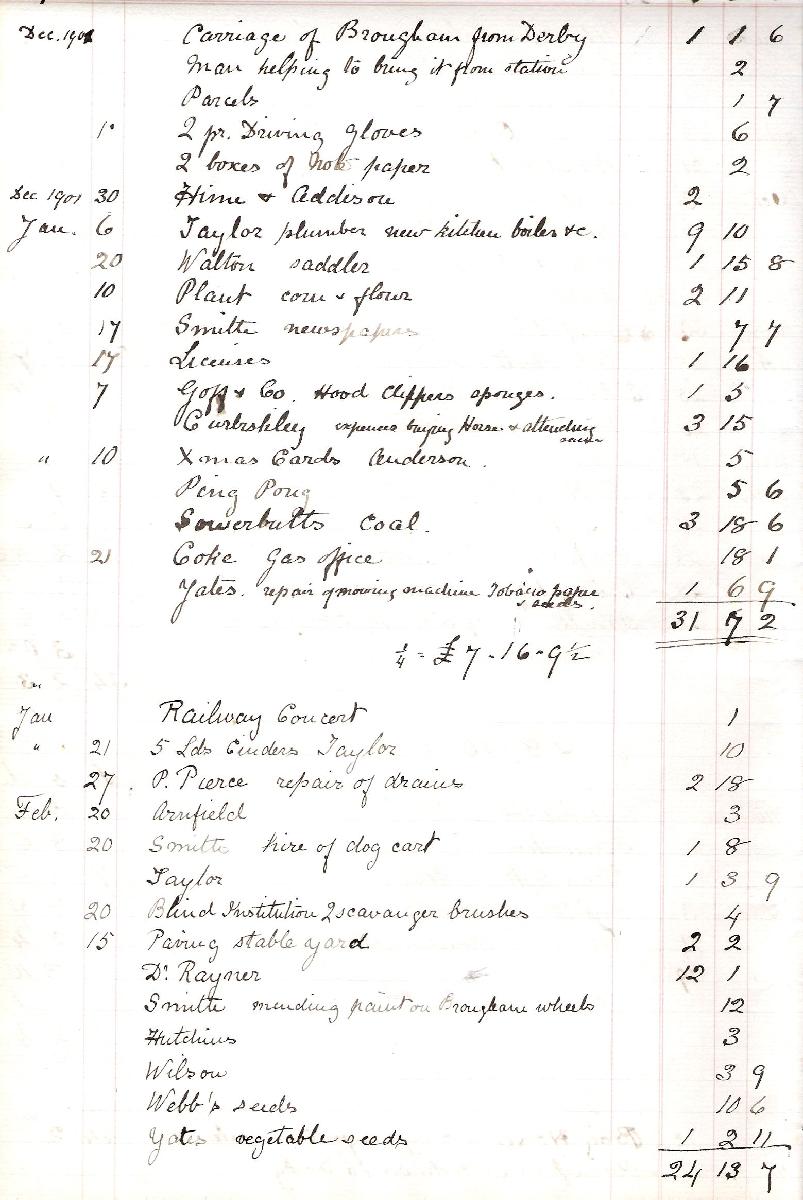 Dec. 1901 Carriage of Brougham from Derby 1 1 6
Man helping to bring it from station 2
Parcels 1 7
1 2 pr. Driving Gloves 6
2 boxes of Note paper 2
Dec 1901 30 Hime & Addison 2
Jan. 6 Taylor plumber new kitchen boiler &c. 9 10
20 Walton saddler 1 15 8
10 Plant corn & flour 2 11
17 Smith newspapers 7 7
17 Licenses 1 16
7 Goff & Co. Hood Clippers sponges. 1 5
expenses buying Horse & attending 3 15
" 10 Xmas Cards Anderson. 5
Ping Pong 5 6
Sowerbutts Coal. 3 18 6
21 Coke Gas office 18 1
Yates. repair of mowing machine Tobacco paper 1 6 9
seeds.
31 7 2
¼ = £7-16-9½
"
Jan Railway Concert 1
" 21 5 Lds Cinders Taylor 10
27. P. Pierce repair of drains 2 18
Feb. 20 Arnfield 3
20 Smith hire of dog cart 1 8
Taylor 1 3 9
20 Blind Institution 2 scavanger brushes 4
15 Paving stable yard 2 2
Dr. Rayner 12 1
Smith mending paint on Brougham wheels 12
Hutchins 3
Wilson 3 9
Webb's seeds 10 6
Yates vegetable seeds 1 2 11
24 13 7